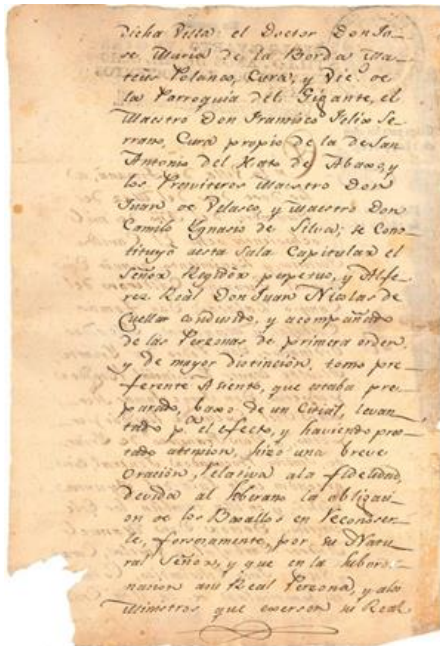 dicha Villa: el Doctor Don Jo-
se Maria de la Borda Ma-
teus Polanco, Cura, y Vic. de
la Parroquia del Gigante, el
Maestro Don Francisco Felix Se-
rrano, Cura propio de la de San
Antonio del Hato de Abaxo, y
los Presviteros Maestro Don
Juan de Velasco, y Maestro Don
Camilo Ygnasio de Silva; se Cons-
tituyó a esta Sala Capitular el
Señor Regidor perpetuo, y Alfe-
rez Real Don Juan Nicolas de
Cuellar conducido, y acompañado
de las Personas de primera orden
y de mayor distincion, tomo pre-
ferente Asiento, que estaba pre-
parado, baxo de un Citial, levan-
tado pa. el efecto, y haviendo pres-
tado atension, hizo una breve
Oración, Relativa ala fidelidad,
devida al Soberano la obligasi-
on de los Basallos en Reconoser-
le, forsosamente, por su Natu-
ral Señor, y que en la subor-
nasion asu Real Persona, y alos
Ministros que exersen su Real